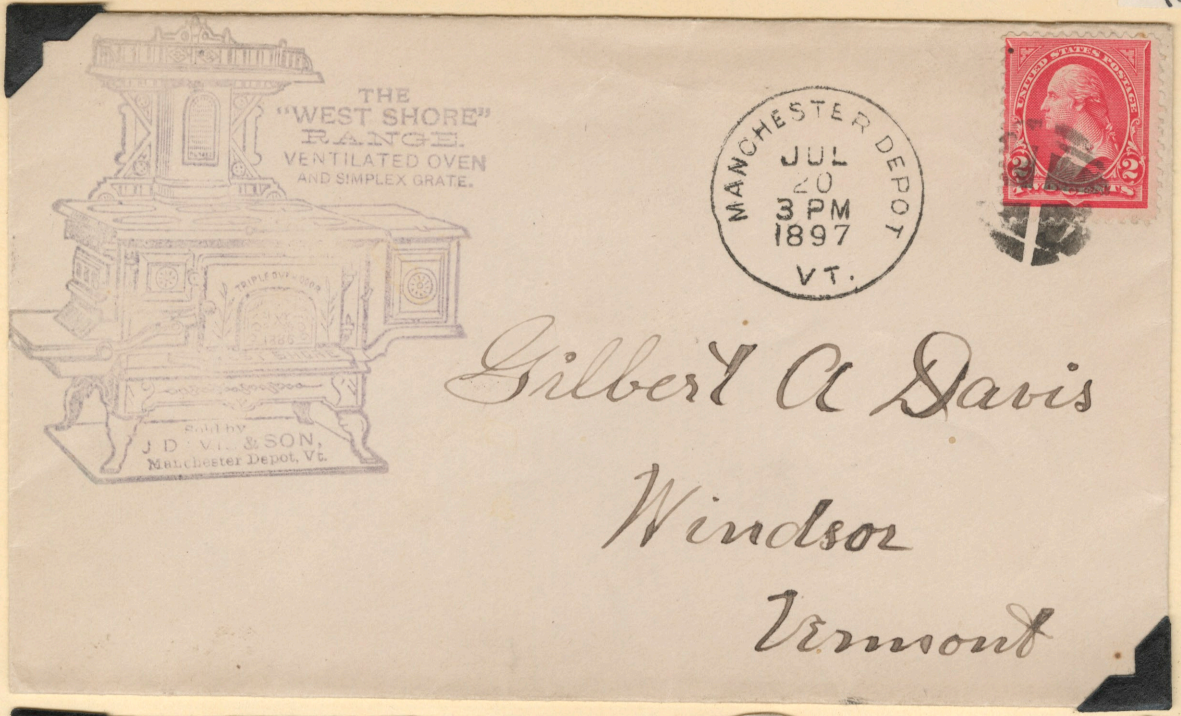 THE
"WEST SHORE"
RANGE.
VENTILATED OVEN
AND SIMPLEX GRATE.
TRIPLE OVEN DOOR
1886
WEST SHORE
Sold by
J D & SON,
Manchester Depot, Vt.
MANCHESTER DEPOT
JUL
20
3 PM
1897
VT.
UNITED STATES POSTAGE
2 2
Gilbert A Davis
Windsor
Vermont